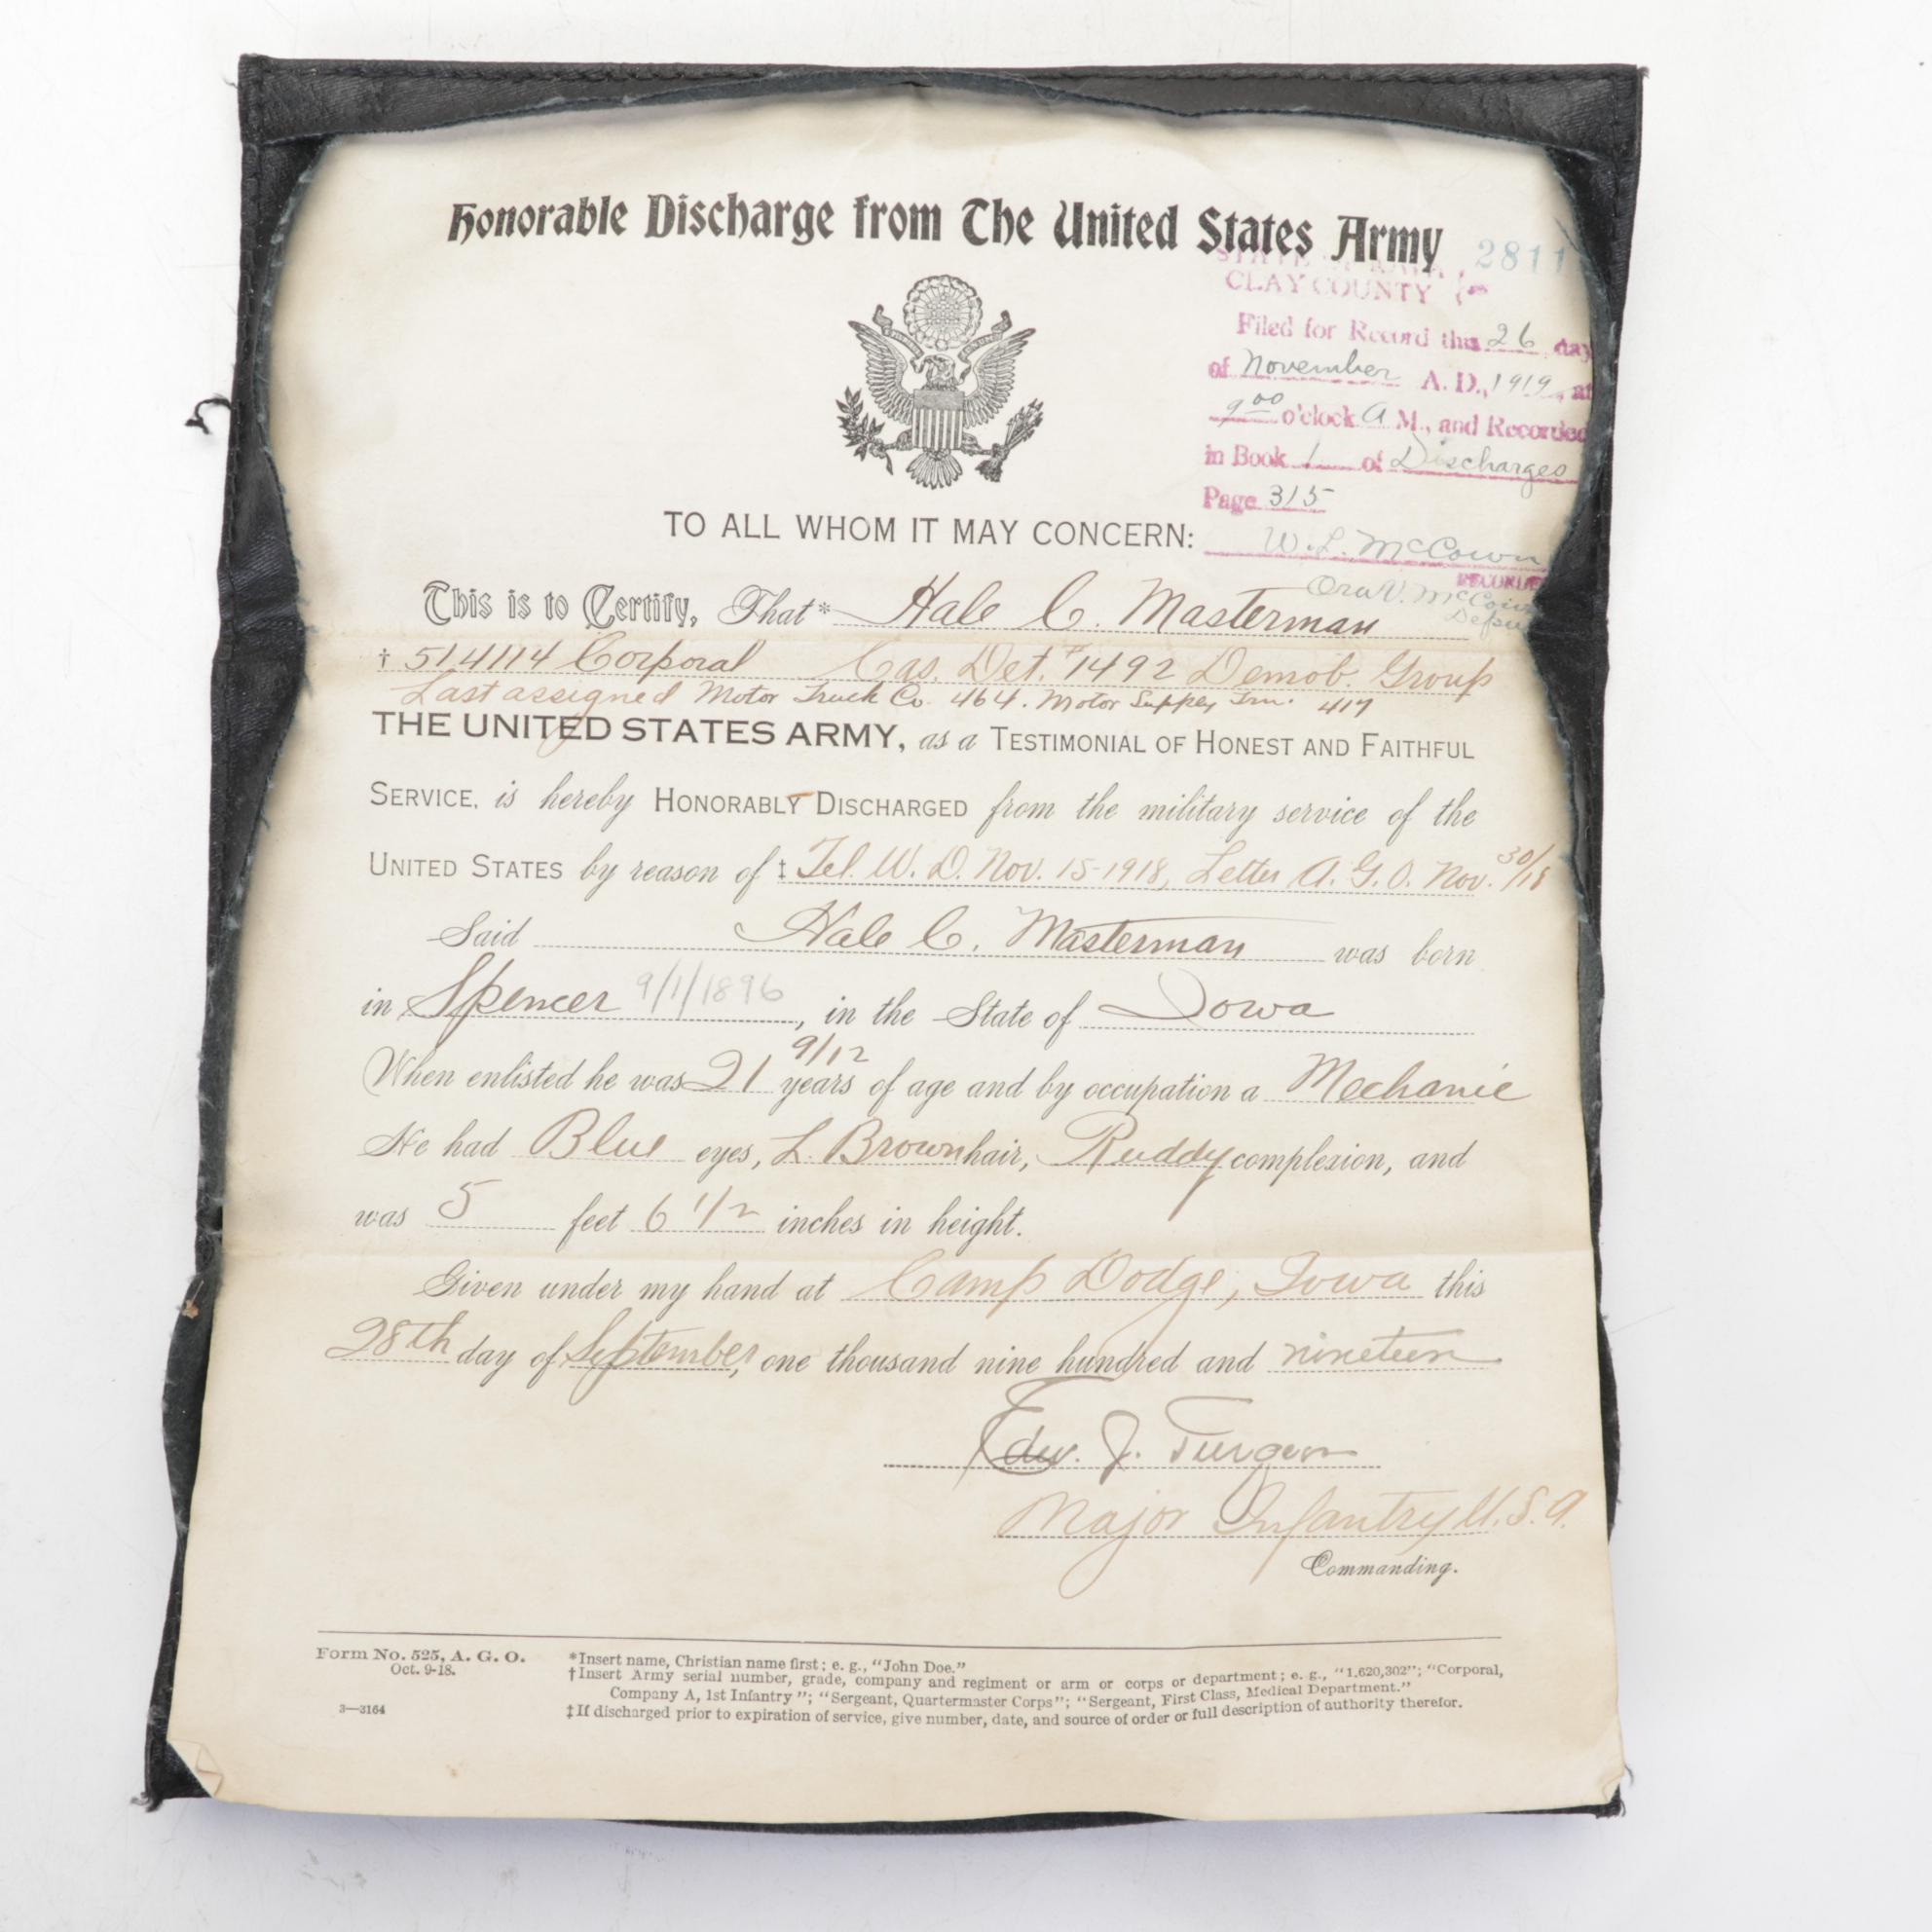 Honorable Discharge from The United States Army
2811
CLAY COUNTY
Filed for Record this 26 day
of November A. D., 1919, at
9 00 o'clock A M., and Recorded
in Book 1 of Discharges
Page 315
W. L. McCown
TO ALL WHOM IT MAY CONCERN:
This is to Certify, That* Hale C. Masterman
† 514114 Corporal Cas. Det. #1492 Demob. Group
Last assigned Motor Truck Co. 464. Motor Supply Trn. 417
THE UNITED STATES ARMY, as a TESTIMONIAL OF HONEST AND FAITHFUL
SERVICE, is hereby HONORABLY DISCHARGED from the military service of the
UNITED STATES by reason of ‡ Tel. W. D. Nov. 15-1918, Letter A. G. O. Nov. 30/18
Said Hale C. Masterman was born
in Spencer 9/1/1896, in the State of Iowa
When enlisted he was 21 9/12 years of age and by occupation a Mechanic
He had Blue eyes, L. Brown hair, Ruddy complexion, and
was 5 feet 6 1/2 inches in height.
Given under my hand at Camp Dodge, Iowa this
28th day of September, one thousand nine hundred and nineteen
Edw. J. Turgeon
Major Infantry U.S.A.
Commanding.
Form No. 525, A. G. O.
Oct. 9-18.
3—3164
*Insert name, Christian name first; e. g., "John Doe."
†Insert Army serial number, grade, company and regiment or arm or corps or department; e. g., "1,620,302"; "Corporal,
Company A, 1st Infantry"; "Sergeant, Quartermaster Corps"; "Sergeant, First Class, Medical Department."
‡If discharged prior to expiration of service, give number, date, and source of order or full description of authority therefor.